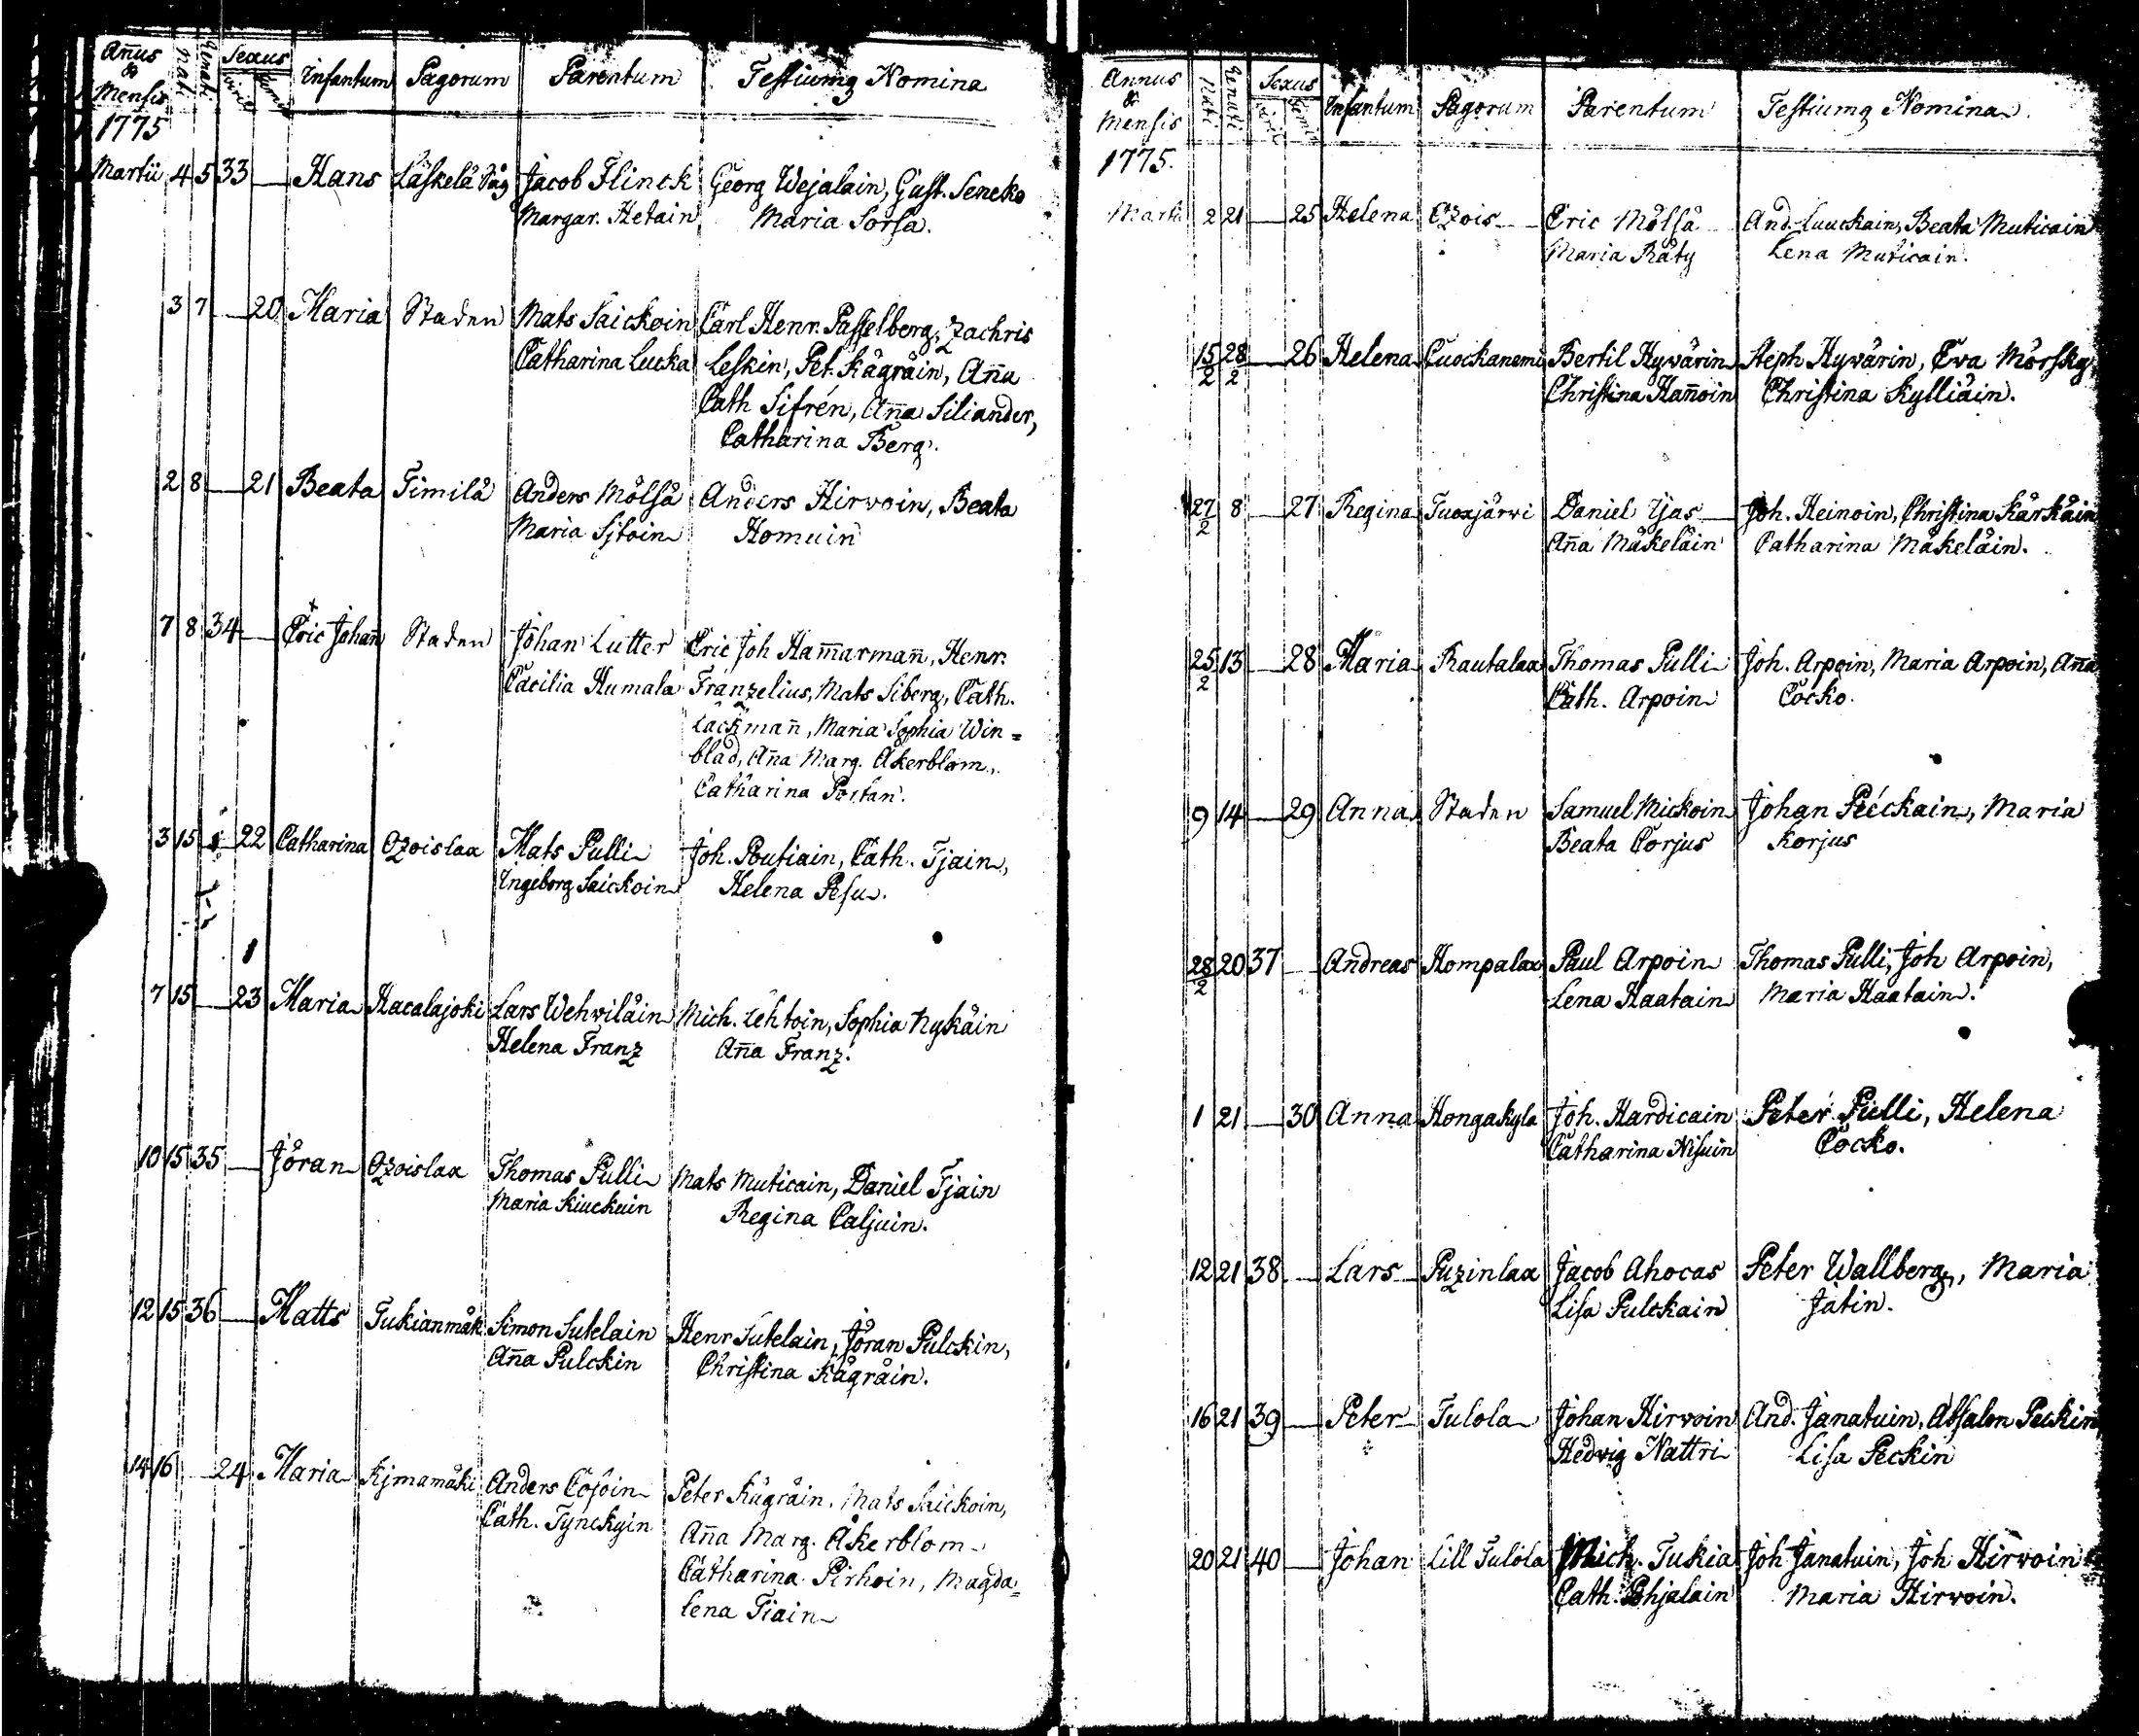 Añus & Mensis Nati Renati Sexus Viril Femin Infantum Pagorum Parentum Testiumq Nomina
1775
Martii 4 5 33 — Hans Läskelä Såg Jacob Flinck Georg Wejalain, Gust. Senecko
Margar. Hetain Maria Sorsa.
3 7 — 20 Maria Staden Mats Saickoin Carl Henr. Passelberg, Zachris
Catharina Lucka Leskin, Pet. Kägräin, Aña
Cath Sifrén, Aña Siliander,
Catharina Berg.
2 8 — 21 Beata Timilä Anders Mölsä Anders Hirvoin, Beata
Maria Sjtoin Homuin
7 8 34 — Eric Johañ Staden Johan Lutter Eric Joh Ham̃armañ, Henr.
Cæcilia Humala Franzelius, Mats Siberg, Cath.
Lackmañ, Maria Sophia Win=
blad, Aña Marg. Åkerblom,
Catharina Postan.
3 15 — 22 Catharina Ozoislax Mats Pulli Joh. Poutiain, Cath. Tjain,
Ingeborg Saickoin Helena Pesu.
7 15 — 23 Maria Hacalajoki Lars Wehviläin Mich. Lehtoin, Sophia Nykäin
Helena Franz Aña Franz.
10 15 35 — Jöran Ozoislax Thomas Pulli Mats Muticain, Daniel Tjain
Maria Kiuckuin Regina Caljuin.
12 15 36 — Matts Tukianmäk Simon Sutelain Henr Sutelain, Jöran Pulckin,
Aña Pulckin Christina Kägräin.
14 16 — 24 Maria Kjmamäki Anders Cosoin Peter Kägräin, Mats Saickoin,
Cath. Tynckyin Aña Marg. Åkerblom
Catharina Pirhoin, Magda=
lena Tiain
Annus & Mensis Nati Renati Sexus Viril Femin Infantum Pagorum Parentum Testiumq Nomina
1775.
Martii 2 21 — 25 Helena Ozois— Eric Mölsä And. Luuckain, Beata Muticain
Maria Räty Lena Muticain.
15/2 28/2 — 26 Helena Cuockanemi Bertil Hyvärin Steph Hyvärin, Eva Mörsky,
Christina Hañoin Christina Kylliäin.
27/2 8 — 27 Regina Tuoxjärvi Daniel Ijas Joh. Heinoin, Christina Kärkäin
Aña Mäkeläin Catharina Mäkeläin.
25/2 13 — 28 Maria Rautalax Thomas Pulli Joh. Arpoin, Maria Arpoin, Aña
Cath. Arpoin Cocko.
9 14 — 29 Anna Staden Samuel Mickoin Johan Peéckain, Maria
Beata Corjus Korjus
28/2 20 37 — Andreas Hompalax Paul Arpoin Thomas Pulli, Joh Arpoin,
Lena Haatain Maria Haatain.
1 21 — 30 Anna Hongakyla Joh. Hardicain Peter Pulli, Helena
Catharina Nisuin Cocko.
12 21 38 — Lars Puzinlax Jacob Ahocas Peter Wallberg, Maria
Lisa Pulckain Jatin.
16 21 39 — Peter Tulola Johan Hirvoin And. Janatuin, Absalon Peckin
Hedvig Nattri Lisa Peckin
20 21 40 — Johan Lill Tulola Mich. Tukia Joh Janatuin, Joh Hirvoin
Cath. Pohjalain Maria Hirvoin.